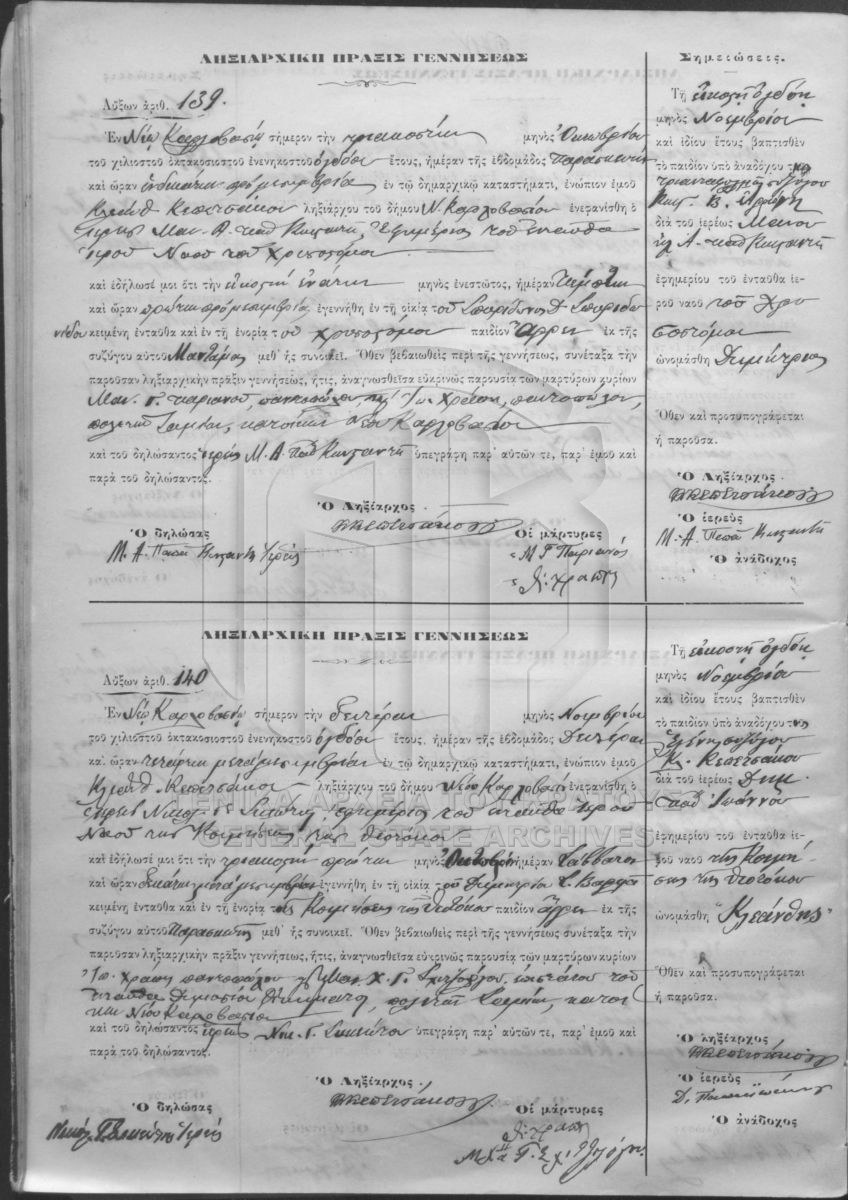 ΛΗΞΙΑΡΧΙΚΗ ΠΡΑΞΙΣ ΓΕΝΝΗΣΕΩΣ
Αὔξων ἀριθ. 139.
Ἐν Νέῳ Καρλοβασίῳ σήμερον τὴν τριακοστὴν μηνὸς Ὀκτωβρίου
τοῦ χιλιοστοῦ ὀκτακοσιοστοῦ ἐνενηκοστοῦ ὀγδόου ἔτους, ἡμέραν τῆς ἑβδομάδος Παρασκευὴν
καὶ ὥραν ἑνδεκάτην πρὸ μεσημβρίας ἐν τῷ δημαρχικῷ καταστήματι, ἐνώπιον ἐμοῦ
Κλεάνθ. ληξιάρχου τοῦ δήμου Ν. Καρλοβασίου ἐνεφανίσθη ὁ
ἱερεὺς Μαν. Α. Παπᾶ ἐφημέριος τοῦ ἐνταῦθα
ἱεροῦ Ναοῦ τοῦ Χρυσοστόμου
καὶ ἐδήλωσέ μοι ὅτι τὴν εἰκοστὴν ἐνάτην μηνὸς ἐνεστῶτος, ἡμέραν Πέμπτην
καὶ ὥραν πρώτην πρὸ μεσημβρίας ἐγεννήθη ἐν τῇ οἰκίᾳ τοῦ Σπυρίδωνος Δ. Σπυριδω
νίδου κειμένῃ ἐνταῦθα καὶ ἐν τῇ ἐνορίᾳ τοῦ Χρυσοστόμου παιδίον ἄρρεν ἐκ τῆς
συζύγου αὐτοῦ μεθ' ἧς συνοικεῖ. Ὅθεν βεβαιωθεὶς περὶ τῆς γεννήσεως, συνέταξα τὴν
παροῦσαν ληξιαρχικὴν πρᾶξιν γεννήσεως, ἥτις, ἀναγνωσθεῖσα εὐκρινῶς παρουσίᾳ τῶν μαρτύρων κυρίων
Μαν. Γ. Παριανοῦ, παντοπώλου, παντοπώλου,
πολιτῶν Σαμίων, κατοίκων Νέου Καρλοβασίου
καὶ τοῦ δηλώσαντος ἱερέως Μ. Α. Παπᾶ ὑπεγράφη παρ' αὐτῶν τε, παρ' ἐμοῦ καὶ
παρὰ τοῦ δηλώσαντος.
Ὁ Ληξίαρχος
Ὁ δηλώσας
Μ. Α. Παπᾶ ἱερεύς
Οἱ μάρτυρες
Μ Γ Παριανός
Σημειώσεις.
Τῇ εἰκοστῇ ὀγδόῃ
μηνὸς Νοεμβρίου
καὶ ἰδίου ἔτους βαπτισθὲν
τὸ παιδίον ὑπὸ ἀναδόχου τῆς
συζύγου
Β.
διὰ τοῦ ἱερέως
Α. Παπᾶ
ἐφημερίου τοῦ ἐνταῦθα ἱε-
ροῦ ναοῦ τοῦ Χρυ
σοστόμου
ὠνομάσθη Δημήτριος
Ὅθεν καὶ προσυπογράφεται
ἡ παροῦσα.
Ὁ Ληξίαρχος
Ὁ ἱερεὺς
Μ. Α. Παπᾶ
Ὁ ἀνάδοχος
ΛΗΞΙΑΡΧΙΚΗ ΠΡΑΞΙΣ ΓΕΝΝΗΣΕΩΣ
Αὔξων ἀριθ. 140
Ἐν Νέῳ Καρλοβασίῳ σήμερον τὴν δευτέραν μηνὸς Νοεμβρίου
τοῦ χιλιοστοῦ ὀκτακοσιοστοῦ ἐνενηκοστοῦ ὀγδόου ἔτους, ἡμέραν τῆς ἑβδομάδος Δευτέραν
καὶ ὥραν τετάρτην μετὰ μεσημβρίαν ἐν τῷ δημαρχικῷ καταστήματι, ἐνώπιον ἐμοῦ
Κλεάνθ. ληξιάρχου τοῦ δήμου Νέου Καρλοβασίου ἐνεφανίσθη ὁ
ἱερεὺς Νικόλ. Γ. ἐφημέριος τοῦ ἐνταῦθα ἱεροῦ
Ναοῦ τῆς Κοιμήσεως τῆς Θεοτόκου
καὶ ἐδήλωσέ μοι ὅτι τὴν τριακοστὴν πρώτην μηνὸς Ὀκτωβρίου ἡμέραν Σάββατον
καὶ ὥραν δεκάτην μετὰ μεσημβρίαν ἐγεννήθη ἐν τῇ οἰκίᾳ τοῦ Δημητρίου
κειμένῃ ἐνταῦθα καὶ ἐν τῇ ἐνορίᾳ τῆς Κοιμήσεως τῆς Θεοτόκου παιδίον ἄρρεν ἐκ τῆς
συζύγου αὐτοῦ Παρασκευῆς μεθ' ἧς συνοικεῖ. Ὅθεν βεβαιωθεὶς περὶ τῆς γεννήσεως συνέταξα τὴν
παροῦσαν ληξιαρχικὴν πρᾶξιν γεννήσεως, ἥτις, ἀναγνωσθεῖσα εὐκρινῶς παρουσίᾳ τῶν μαρτύρων κυρίων
παντοπώλου Μαν. Χ. Γ.
πολιτῶν Σαμίων, κατοί
κων Νέου Καρλοβασίου
καὶ τοῦ δηλώσαντος ἱερέως Νικ. Γ. ὑπεγράφη παρ' αὐτῶν τε, παρ' ἐμοῦ καὶ
παρὰ τοῦ δηλώσαντος.
Ὁ Ληξίαρχος
Ὁ δηλώσας
Νικόλ. Γ. ἱερεύς
Οἱ μάρτυρες
Τῇ εἰκοστῇ ὀγδόῃ
μηνὸς Νοεμβρίου
καὶ ἰδίου ἔτους βαπτισθὲν
τὸ παιδίον ὑπὸ ἀναδόχου τῆς
Ἑλένης συζύγου
Κλ.
διὰ τοῦ ἱερέως Δημ.
Παπᾶ Ἰωάννου
ἐφημερίου τοῦ ἐνταῦθα ἱε-
ροῦ ναοῦ τῆς Κοιμή
σεως τῆς Θεοτόκου
ὠνομάσθη "Κλεάνθης"
Ὅθεν καὶ προσυπογράφεται
ἡ παροῦσα.
Ὁ ληξίαρχος
Ὁ ἱερεὺς
Ὁ ἀνάδοχος
ΓΕΝΙΚΑ ΑΡΧΕΙΑ ΤΟΥ ΚΡΑΤΟΥΣ
GENERAL STATE ARCHIVES